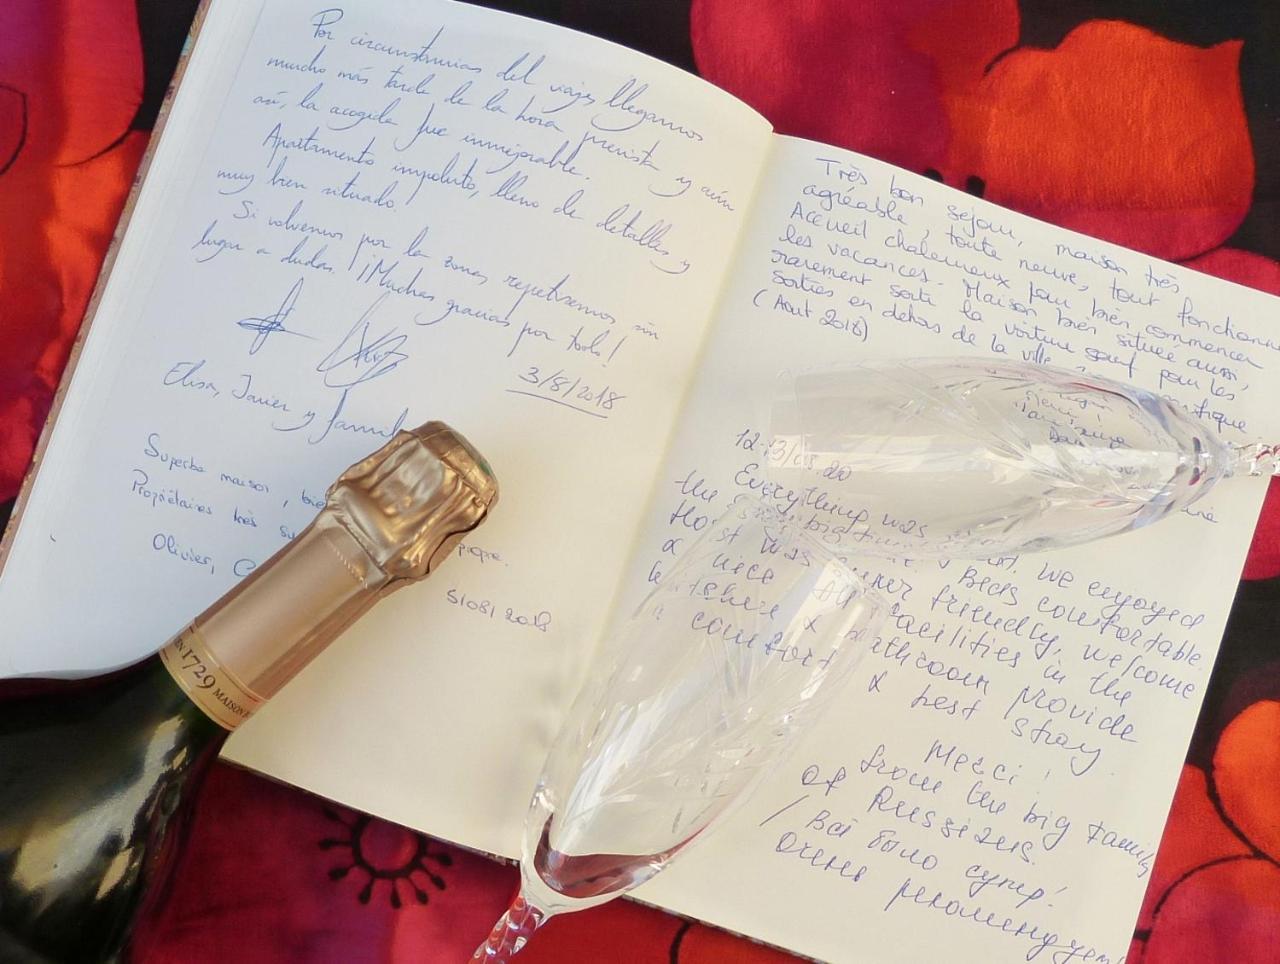 Por circunstancias del viaje llegamos
mucho más tarde de la hora prevista y aún
así, la acogida fue inmejorable.
Apartamento impoluto, lleno de detalles y
muy bien situado!
Si volvemos por la zona, repetiremos sin
lugar a dudas. ¡¡Muchas gracias por todo!
3/8/2018
Elisa, Javier y famil
Superbe maison, bie
Propriétaires très su
propre.
Olivier, C
5/08/2018
Très bon séjour, maison très
agréable, toute neuve, tout fonctionne
Accueil chaleureux pour bien commencer
les vacances. Maison bien située aussi,
rarement sorti la voiture sauf pour les
sorties en dehors de la ville
(Aout 2018)
Everything was
the big We enjoyed
Host was super friendly, welcome
Beds comfortable
& nice All facilities in the
kitchen & bathroom provide
comfort & best stay
Merci!
from the big family
of Russians.
/ Всё было супер!
очень рекомендуем
ЕN 1729 MAISON R